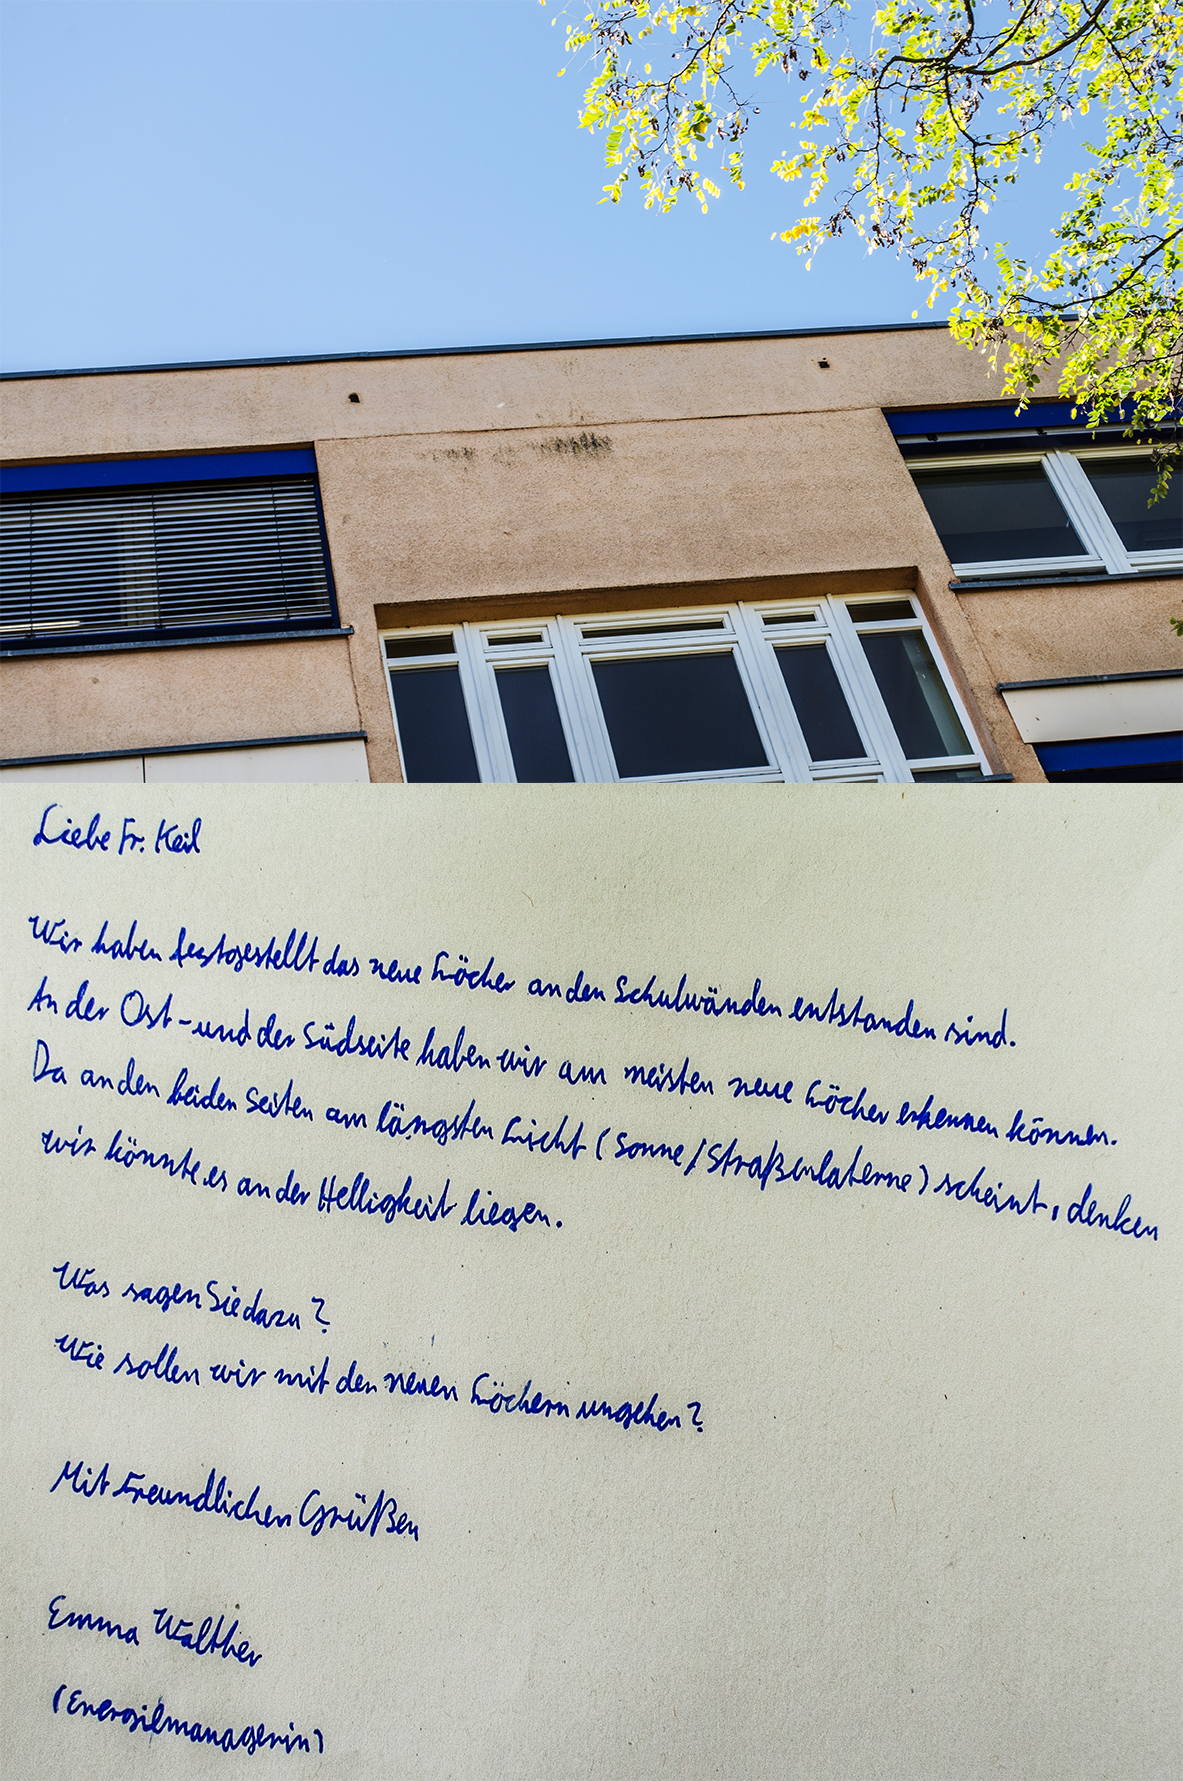 Liebe Fr. Keil
Wir haben festgestellt das neue Löcher an den Schulwänden entstanden sind.
An der Ost- und der Südseite haben wir am meisten neue Löcher erkennen können.
Da an den beiden Seiten am längsten Licht (Sonne/Straßenlaterne) scheint, denken
wir könnte es an der Helligkeit liegen.
Was sagen Sie dazu?
Wie sollen wir mit den neuen Löchern umgehen?
Mit Freundlichen Grüßen
Emma Walther
(Energiemanagerin)